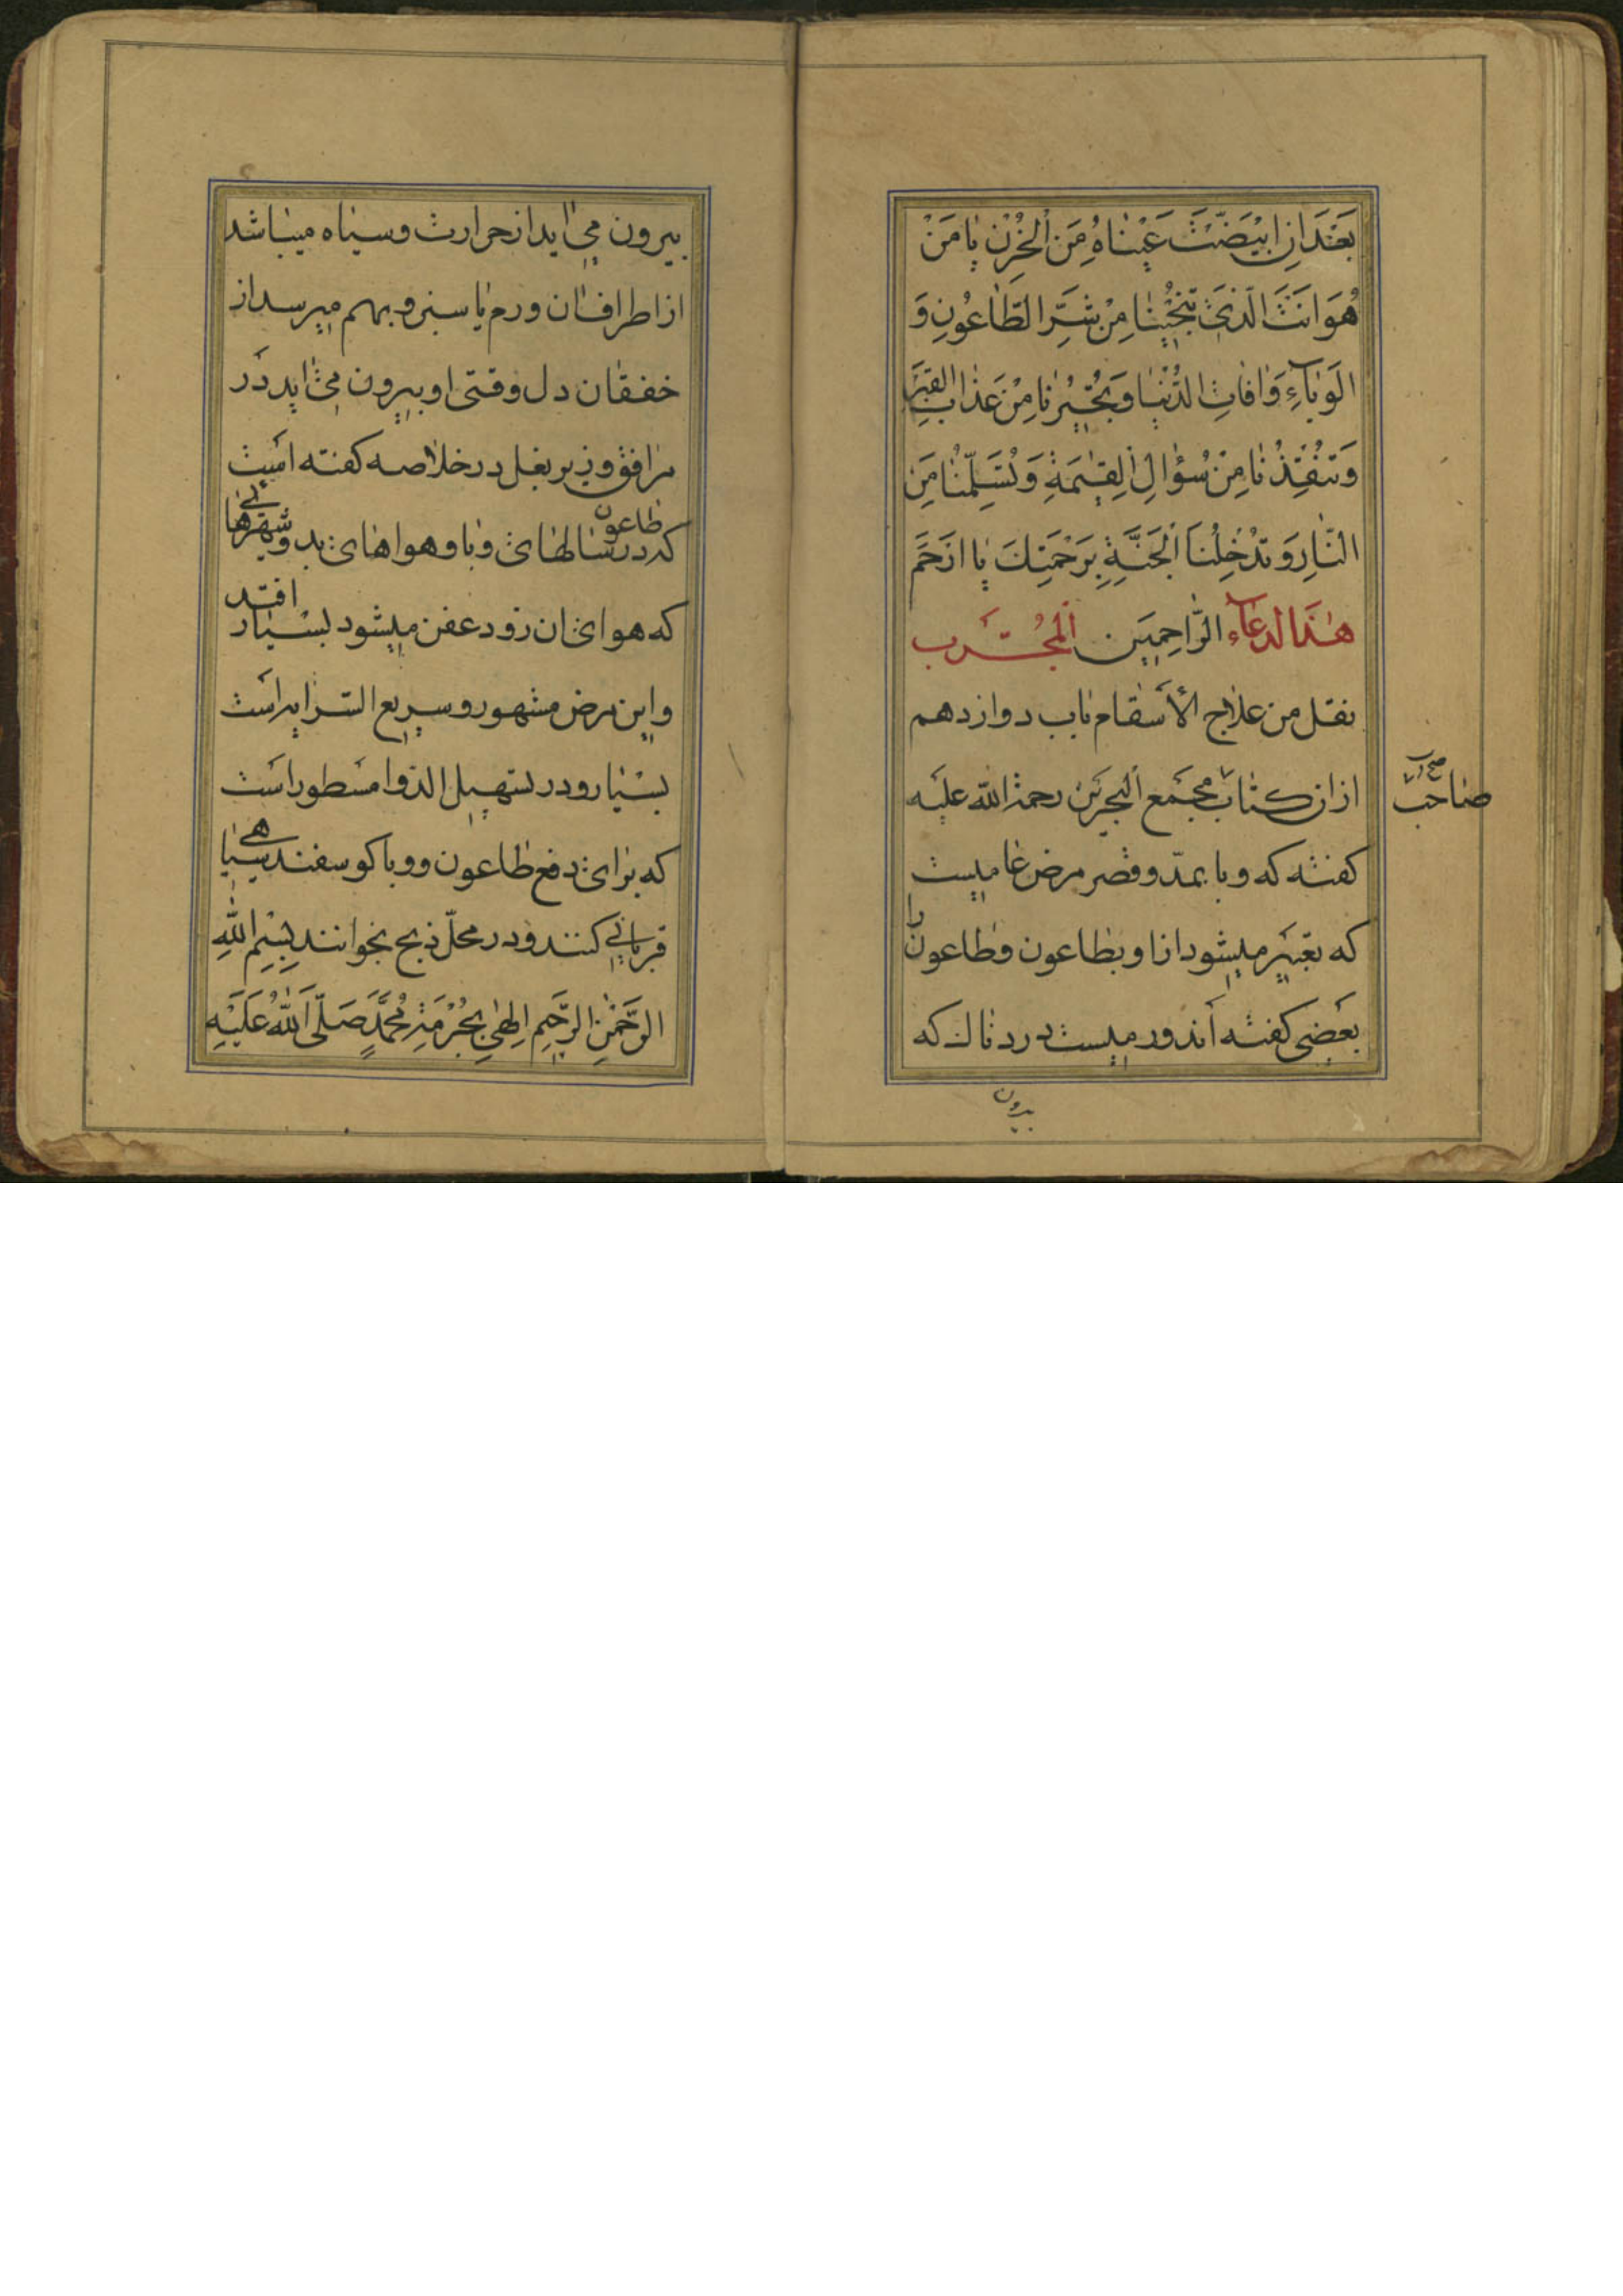 بَعْدَ اَنِ ابْيَضَّتْ عَيْناهُ مِنَ الْحُزْنِ يا مَنْ
هُوَ اَنْتَ الَّذى تُنْجِينا مِنْ شَرِّ الطّاعُونِ وَ
الوَبآءِ وَ افاتِ الدُّنْيا وَ تُجيرُنا مِنْ عَذابِ القَبْرِ
وَ تُنْقِذُنا مِنْ سُؤالِ الْقِيمَةِ وَ تُسَلِّمُنا مِنَ
النّارِ وَ تُدْخِلُنَا الْجَنَّةِ بِرَحْمَتِكَ يا ارْحَمَ
هذا الدعآء الرّاحِمِين المُجَرّب
نقل من علاج الأسقام باب دوازدهم
از ان كتاب مجمَع البحرَين رحمة الله عليه
صاحب
كفته كه وبا بمدّ و قصر مرض عاميست
كه تعبير ميشود از او بطاعون و طاعون را
بعضى كفته اند ورميست دردناك كه
بيرون
بيرون مى ايد از حرارت و سياه ميباشد
از اطراف ان ورم يا سبز و بهم ميرسد از
خفقان دل وقتى او بيرون مى ايد در
مرافق و زير بغل در خلاصه كفته است
كه در سالهاى وبا و هواهاى بد و شهرهائى
طاعون
كه هواى ان زود عفن ميشود بسيار
افتد
و اين مرض مشهور و سريع السرايه است
بسيار و در تسهيل الدوا مسطور است
كه براى دفع طاعون و وبا كوسفند سياهى
قربانى كنند و در محلّ ذبح بخوانند بِسْمِ اللهِ
الرَّحْمنِ الرَّحيمِ اِلهى بِحُرْمَةِ مُحَمَّدٍ صَلَّى اللهُ عَلَيْهِ